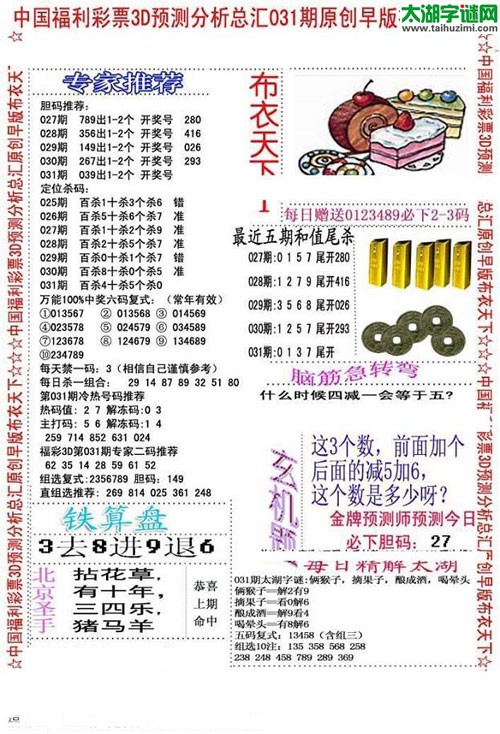 中国福利彩票3D预测分析总汇031期原创早版
太湖字谜网
www.taihuzimi.com
☆中国福利彩票3D预测分析总汇原创早版布衣天下☆☆☆中国福利彩票3D预测分析总汇原创早版布衣天下
专家推荐
胆码推荐:
027期 789出1-2个 开奖号 280
028期 356出1-2个 开奖号 416
029期 149出1-2个 开奖号 026
030期 267出1-2个 开奖号 293
031期 039出1-2个 开奖号
定位杀码:
025期 百杀1十杀3个杀6 错
026期 百杀5十杀6个杀7 准
027期 百杀1十杀2个杀7 准
028期 百杀2十杀9个杀5 准
029期 百杀0十杀1个杀7 错
030期 百杀8十杀0个杀5 准
031期 百杀4十杀5个杀0
万能100%中奖六码复式: (常年有效)
①013567 ②013568 ③014569
④023578 ⑤024579 ⑥034589
⑦123678 ⑧124679 ⑨134689
⑩234789
每天禁一码: 3 (相信自己谨慎参考)
每日杀一组合: 29 14 87 89 32 51 80
第031期冷热号码推荐
热码值: 2 7 解冻码: 0 3
主打码: 5 6 解冻码: 1 4
259 714 852 631 024
福彩3D第031期专家二码推荐
62 35 14 28 59 61 52
组选复式: 2356789 胆码: 149
直组选推荐: 269 814 025 361 248
铁算盘
3去8进9退6
北京圣手
拈花草,
有十年,
三四乐,
猪马羊
恭喜
上期
命中
布衣天下
每日赠送0123489必下2-3码
最近五期和值尾杀
027期: 0 1 5 7 尾开280
028期: 1 2 7 9 尾开416
029期: 3 5 6 8 尾开026
030期: 1 2 5 7 尾开293
031期: 0 1 3 7 尾开
脑筋急转弯
什么时候四减一会等于五?
玄机题
这3个数，前面加个
后面的减5加6,
这个数是多少呀?
金牌预测师预测今日
必下胆码: 27
每日精解太湖
031期太湖字谜: 俩猴子, 摘果子, 酿成酒, 喝晕头
俩猴子==解2有9
摘果子==看0解6
酿成酒==解9看4
喝晕头==有8解6
五码复式: 13458 (含组三)
组选10注: 135 358 568 258
238 248 458 789 289 369
☆中国福利彩票3D预测
总汇原创早版布衣天下